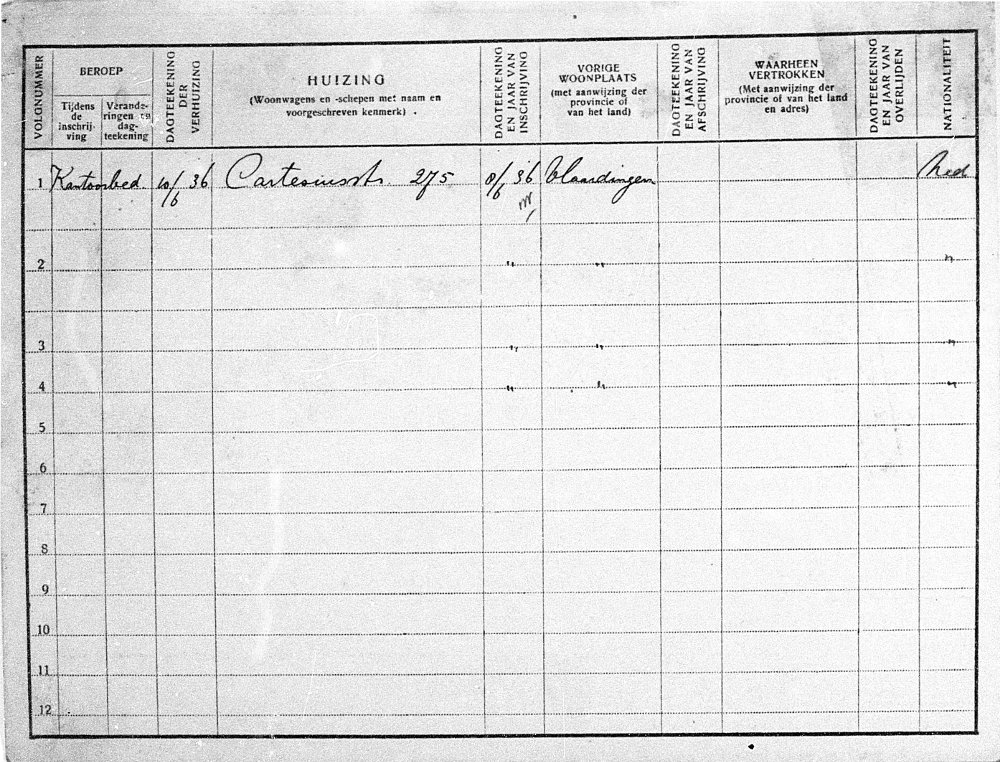 VOLGNUMMER
BEROEP
Tijdens de inschrij-ving
Verande-ringen en dag-teekening
DAGTEEKENING DER VERHUIZING
HUIZING
(Woonwagens en -schepen met naam en
voorgeschreven kenmerk)
DAGTEEKENING EN JAAR VAN INSCHRIJVING
VORIGE
WOONPLAATS
(met aanwijzing der
provincie of
van het land)
DAGTEEKENING EN JAAR VAN AFSCHRIJVING
WAARHEEN
VERTROKKEN
(Met aanwijzing der
provincie of van het land
en adres)
DAGTEEKENING EN JAAR VAN OVERLIJDEN
NATIONALITEIT
1 Kantoorbed. 10/6 36 Cartesiusstr. 275 8/6 36 Vlaardingen Ned
2 " " "
3 " " "
4 " " "
5
6
7
8
9
10
11
12